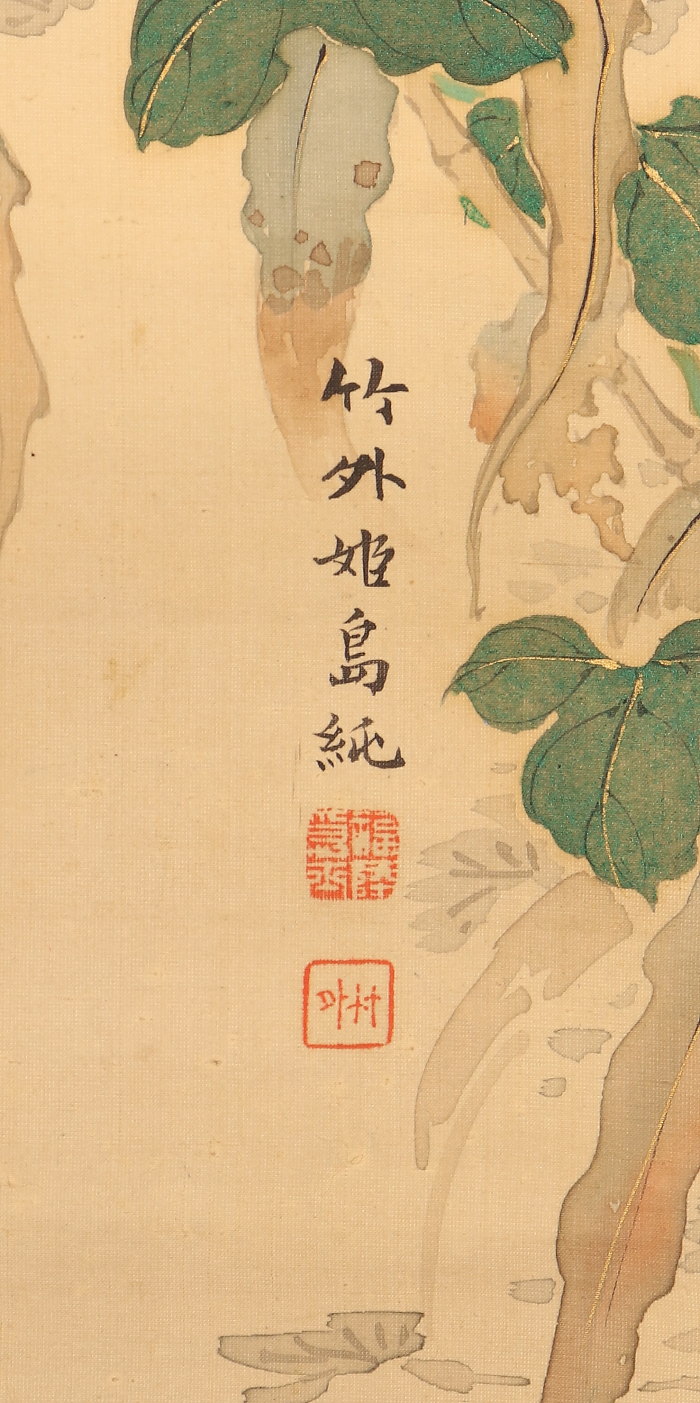 竹外姫島純